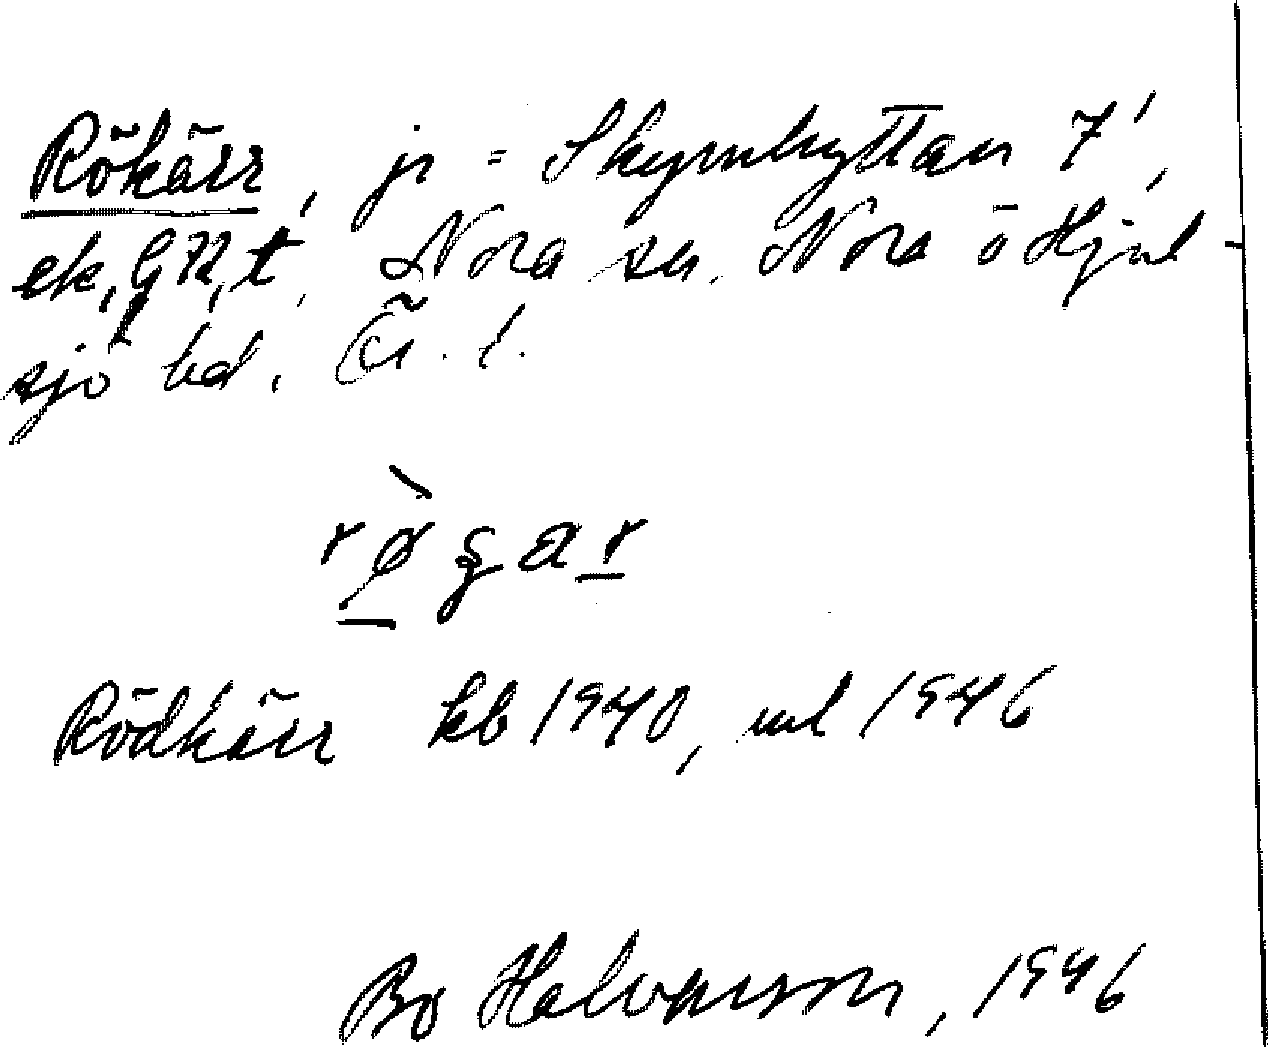 Rökärr, jr = Skymhyttan 7¹,
ek, GK, t, Nora sn. Nora o Hjul-
sjö bd. Ör. l.
Rödkärr kb 1940, ml 1946
Bo Halvarsson, 1946